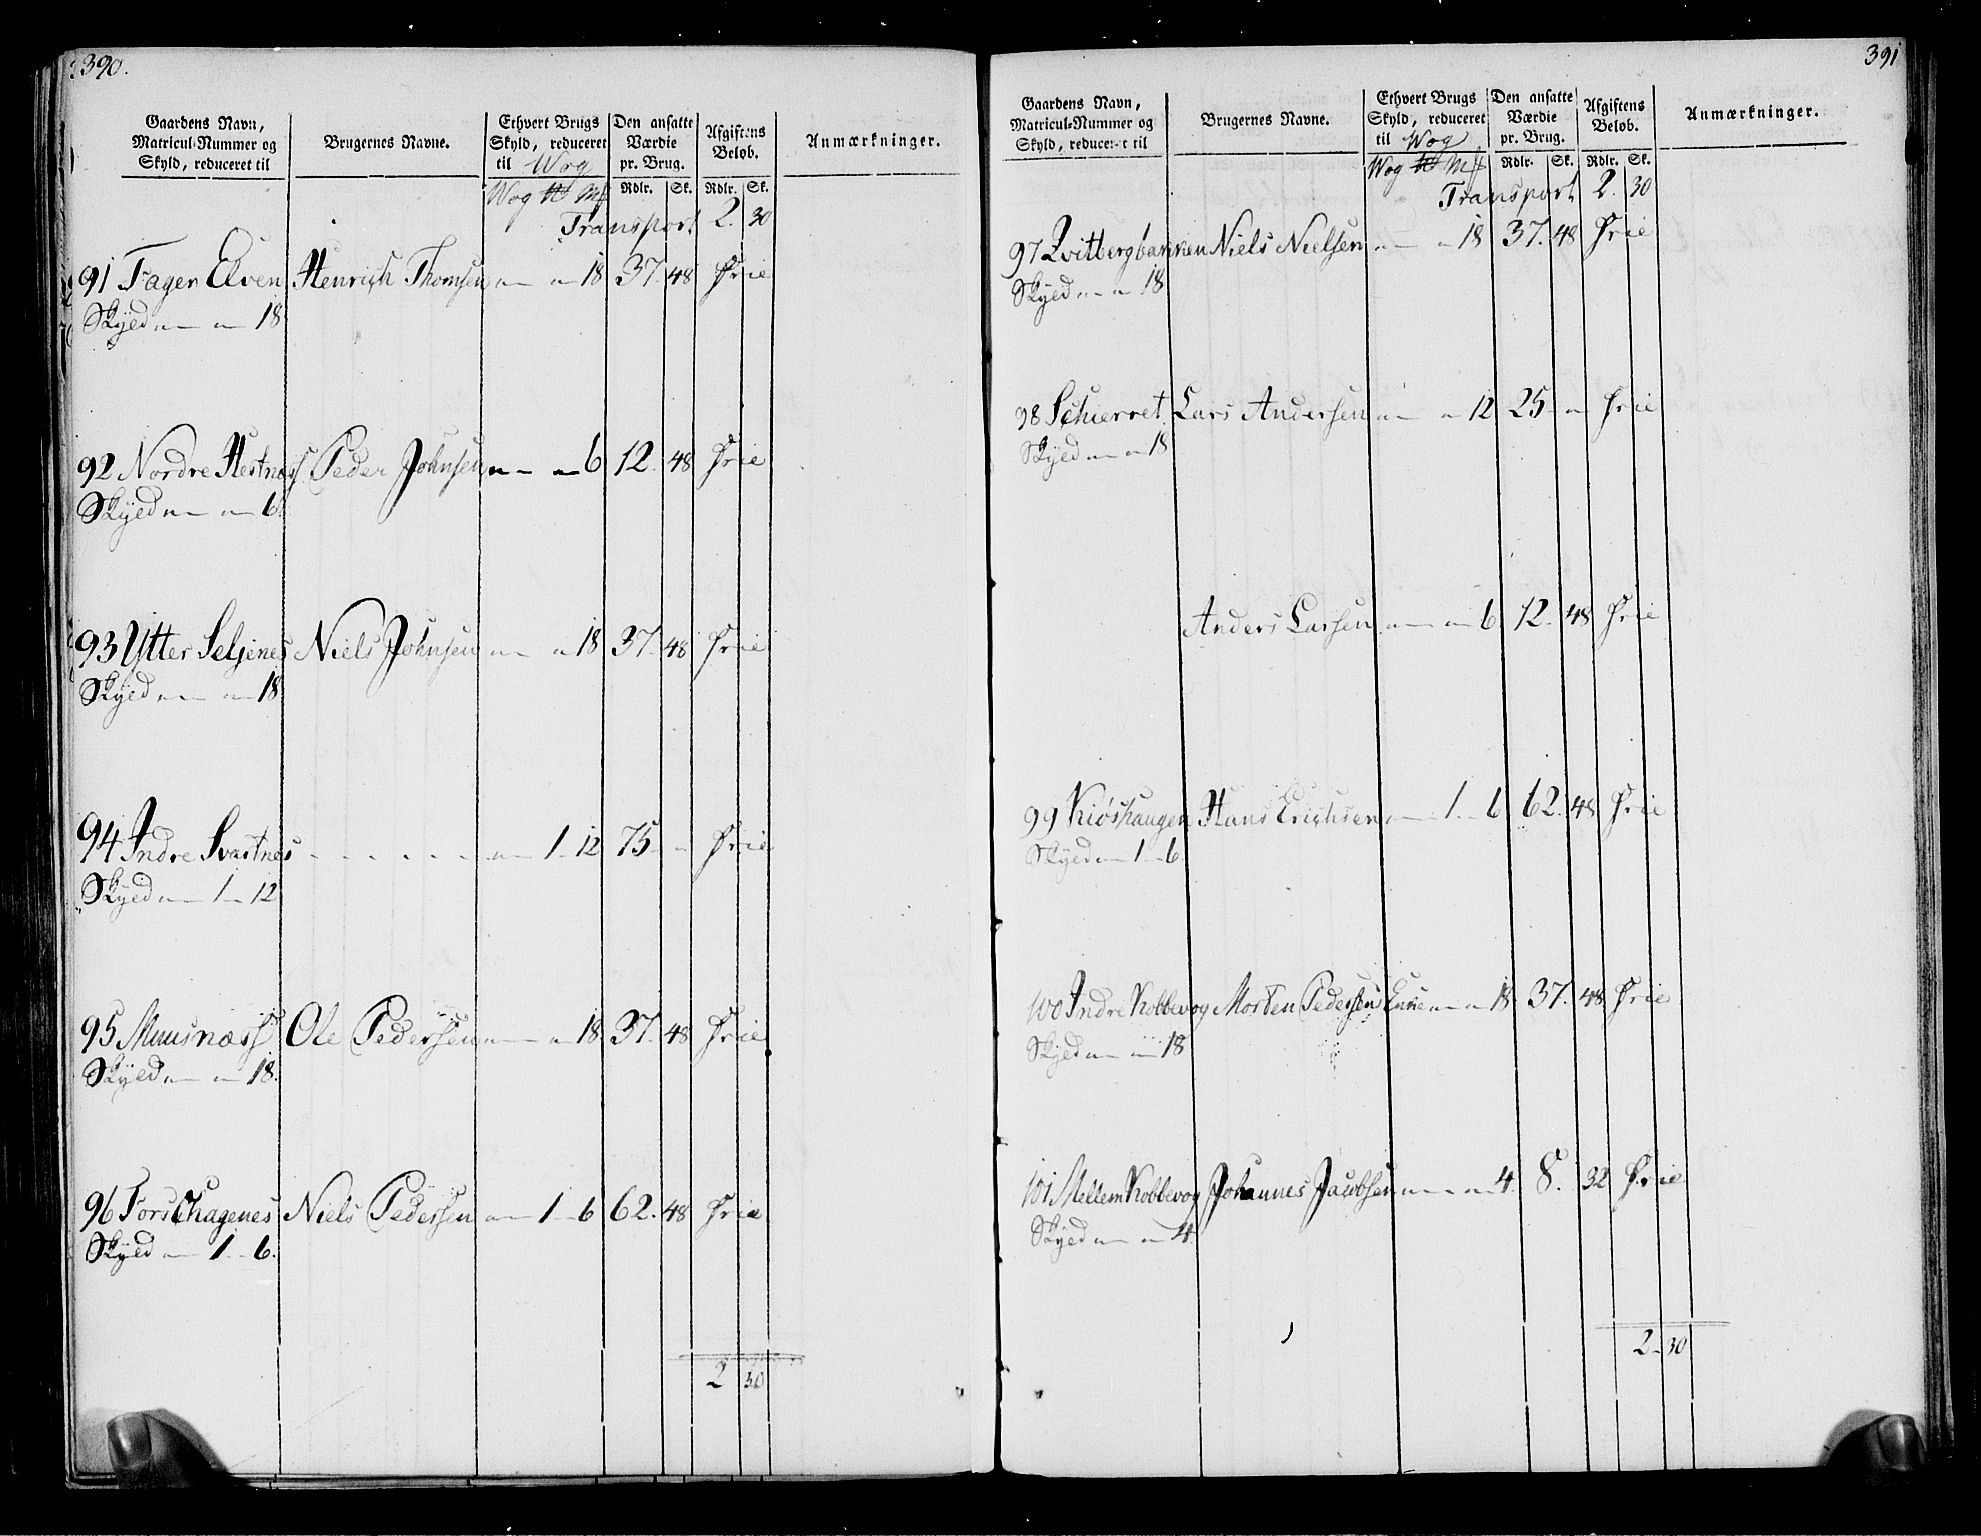 390.
Gaardens Navn, Matricul-Nummer og Skyld, reduceret til | Brugernes Navne. | Ethvert Brugs Skyld, reduceret til Wog | Den ansatte Værdie pr. Brug. | Afgiftens Beløb. | Anmærkninger.
Wog | Rdlr. | Sk. | Rdlr. | Sk.
Transport 2. 30
91 Fager Elven Henrich Thomsen " — " 18 37. 48 Frie
Skyld " — " — 18
92 Nordre Hestnæss Peder Johnsen " — " 6 12. 48 Frie
Skyld " — " — 6
93 Ytter Seljenes Niels Johnsen " — " 18 37. 48 Frie
Skyld " — " — 18
94 Indre Svartnes - - - - - - " — 1 - 12 75 - " Frie
Skyld " — 1 - 12
95 Muusnæss Ole Pedersen " — " 18 37. 48 Frie
Skyld " — " — 18.
96 Forschagenes Niels Pedersen " — 1 - 6 62. 48 Frie
Skyld " — 1 - 6.
2 30
391
Gaardens Navn, Matricul-Nummer og Skyld, reduceret til | Brugernes Navne. | Ethvert Brugs Skyld, reduceret til Wog | Den ansatte Værdie pr. Brug. | Afgiftens Beløb. | Anmærkninger.
Wog | Rdlr. | Sk. | Rdlr. | Sk.
Transport 2. 30
97 Qvitbergbakken Niels Nielsen " — " 18 37. 48 Frie
Skyld " — " 18
98 Schierret Lars Andersen " — " 12 25 - " Frie
Skyld " — " 18
Anders Larsen " — " 6 12. 48 Frie
99 Kiøshaugen Hans Erichsen " — 1 - 6 62. 48 Frie
Skyld " — 1 - 6
100 Indre Kobbevog Morten Pedersens Enke " — " 18 37. 48 Frie
Skyld " — " 18
101 Mellem Kobbevog Johannes Jacobsen " — " 4. 8. 32 Frie
Skyld " — " 4
2 - 30